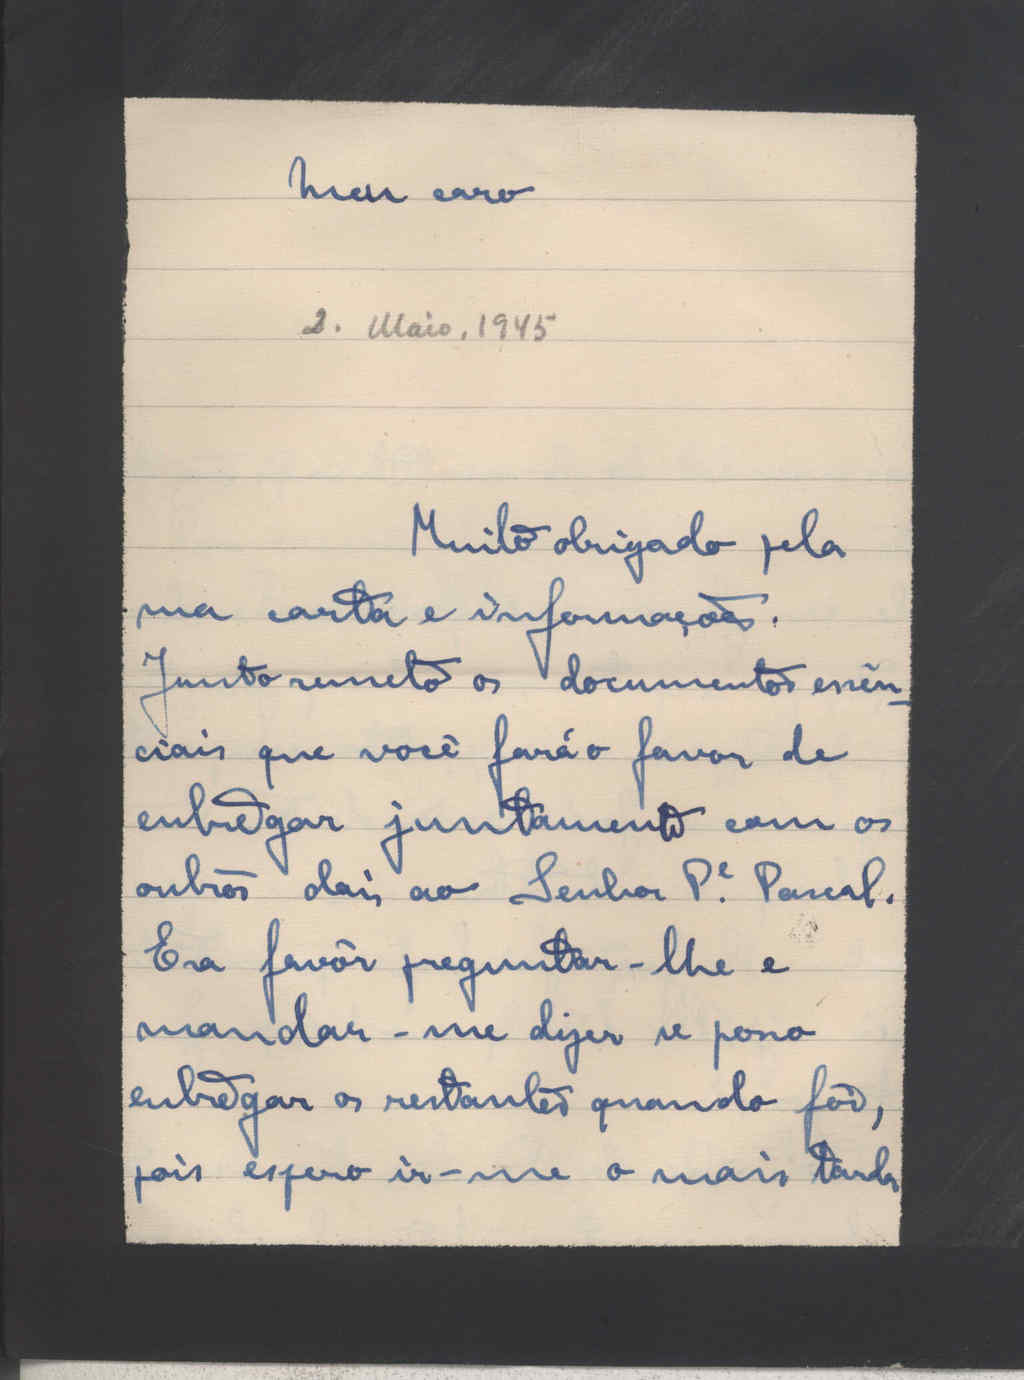 Meu caro
2. Maio, 1945
Muito obrigado pela
sua carta e informações.
Junto remeto os documentos essên-
ciais que você fará o favor de
entregar juntamente com os
outros dois ao Senhor P.e Pascal.
Era favôr preguntar-lhe e
mandar-me dizer se posso
entregar os restantes quando fôr,
pois espero ir-me o mais tardar